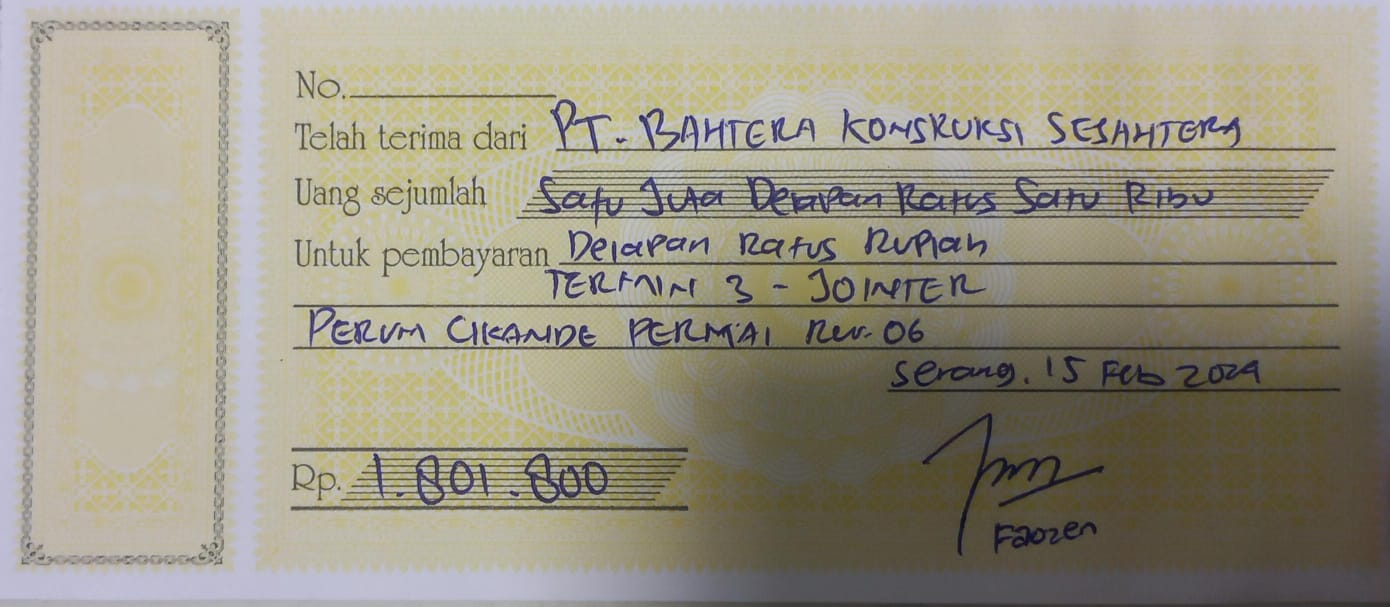 No.
Telah terima dari PT. BAHTERA KONSRUKSI SEJAHTERA
Uang sejumlah Satu Juta Delapan Ratus Satu Ribu
Untuk pembayaran Delapan Ratus Rupiah
TERMIN 3 - JOINTER
PERUM CIKANDE PERMAI Rev. 06
Serang. 15 Feb 2024
Rp. 1.801.800
Faozen